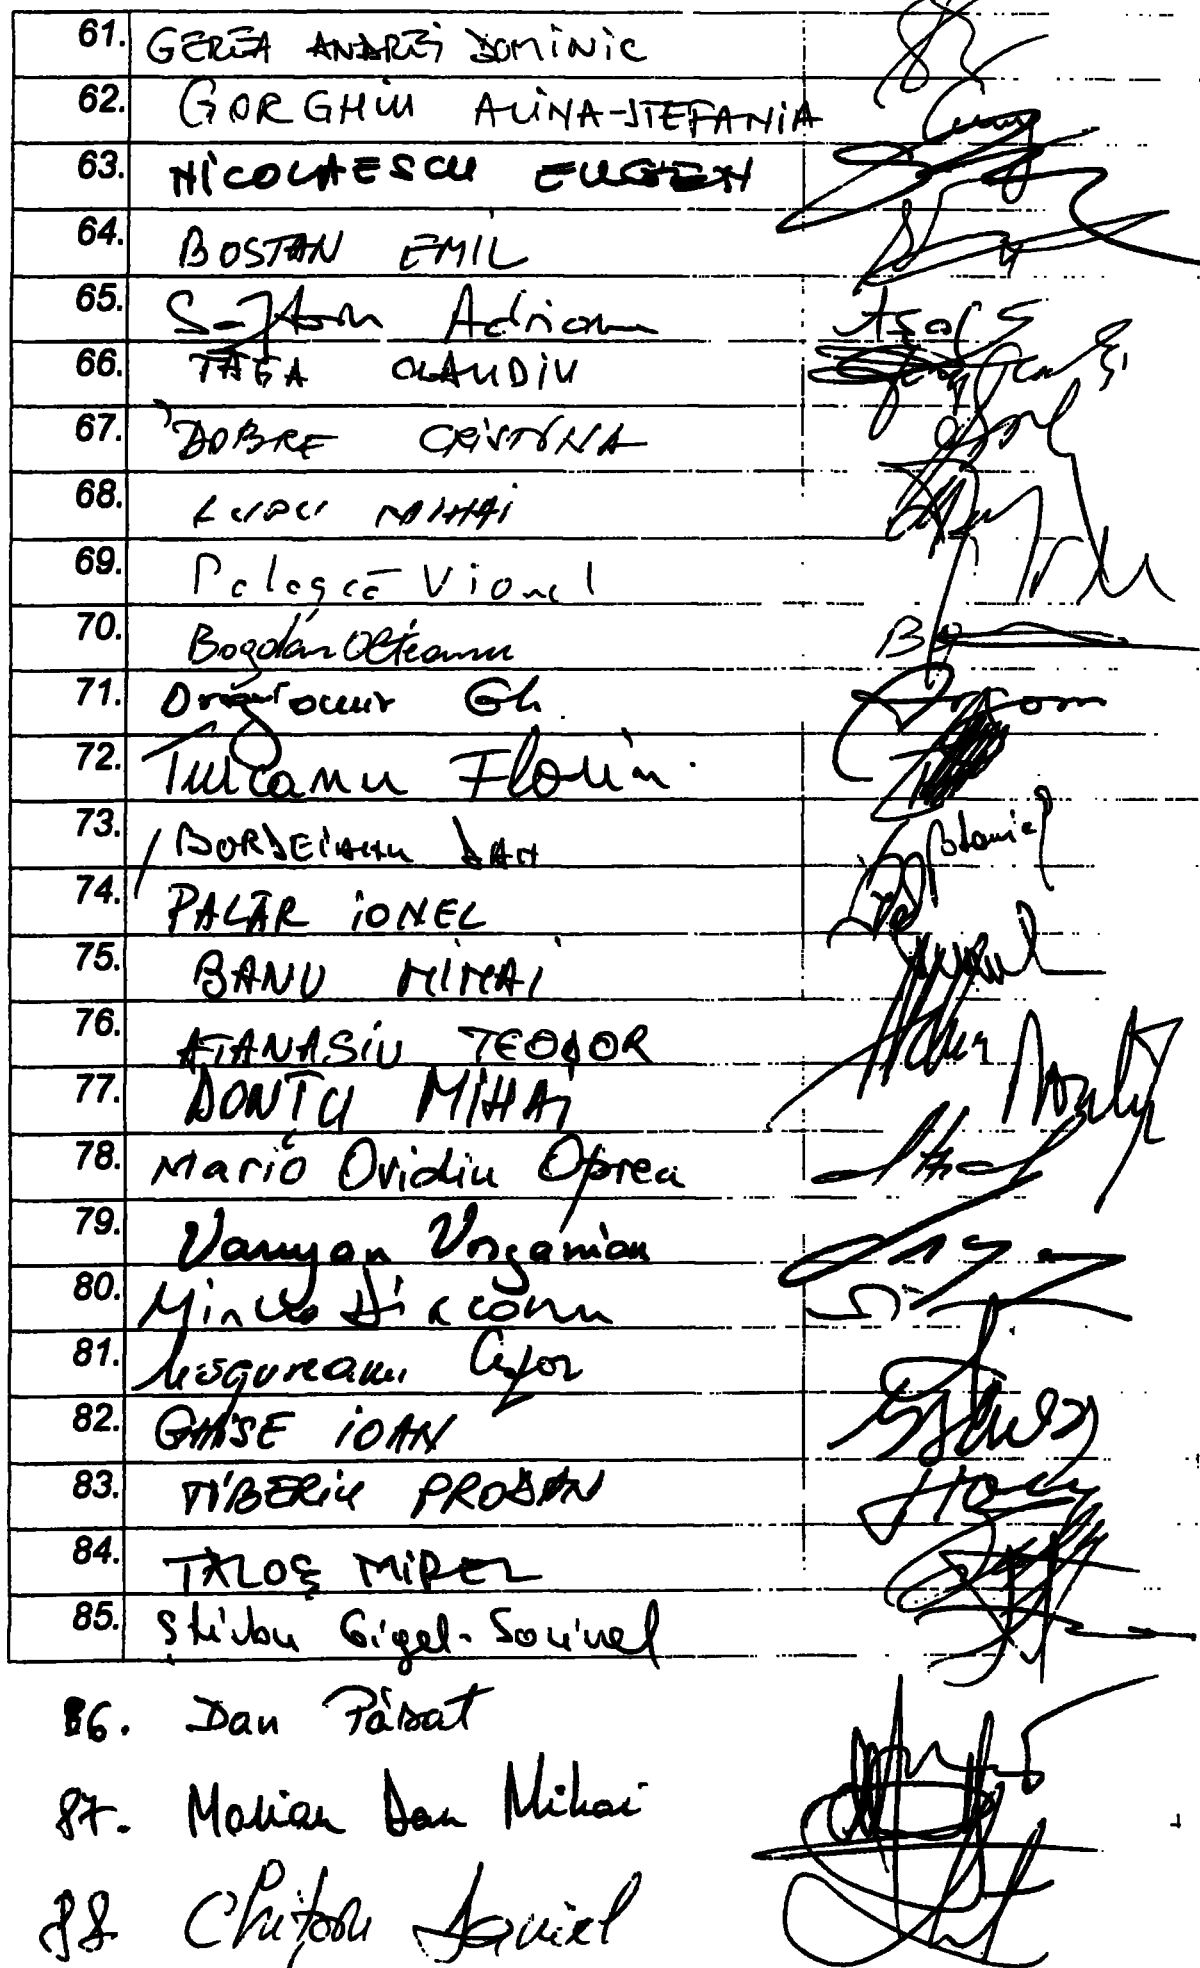 61. GEREA ANDREI DOMINIC
62. GORGHIU ALINA-ȘTEFANIA
63. NICOLAESCU EUGEN
64. BOSTAN EMIL
65. Adriana
66. TAGA CLAUDIU
67. DOBRE CRISTINA
68. LUPU MIHAI
69. Palașcă Viorel
70. Bogdan Olteanu
71. Dragomir Gh.
72. Turcanu Florin
73. BORDEIANU DAN
74. PALĂR IONEL
75. BANU MIHAI
76. ATANASIU TEODOR
77. DONȚU MIHAI
78. Mario Ovidiu Oprea
79. Varujan Vosganian
80. Mircea Diaconu
81.
82. GHIȘE IOAN
83. TIBERIU PRODAN
84. TALOȘ MIREL
85. Știrbu Gigel-Sorinel
86. Dan Păsat
87. Marian Dan Mihai
88 Chitoiu Daniel